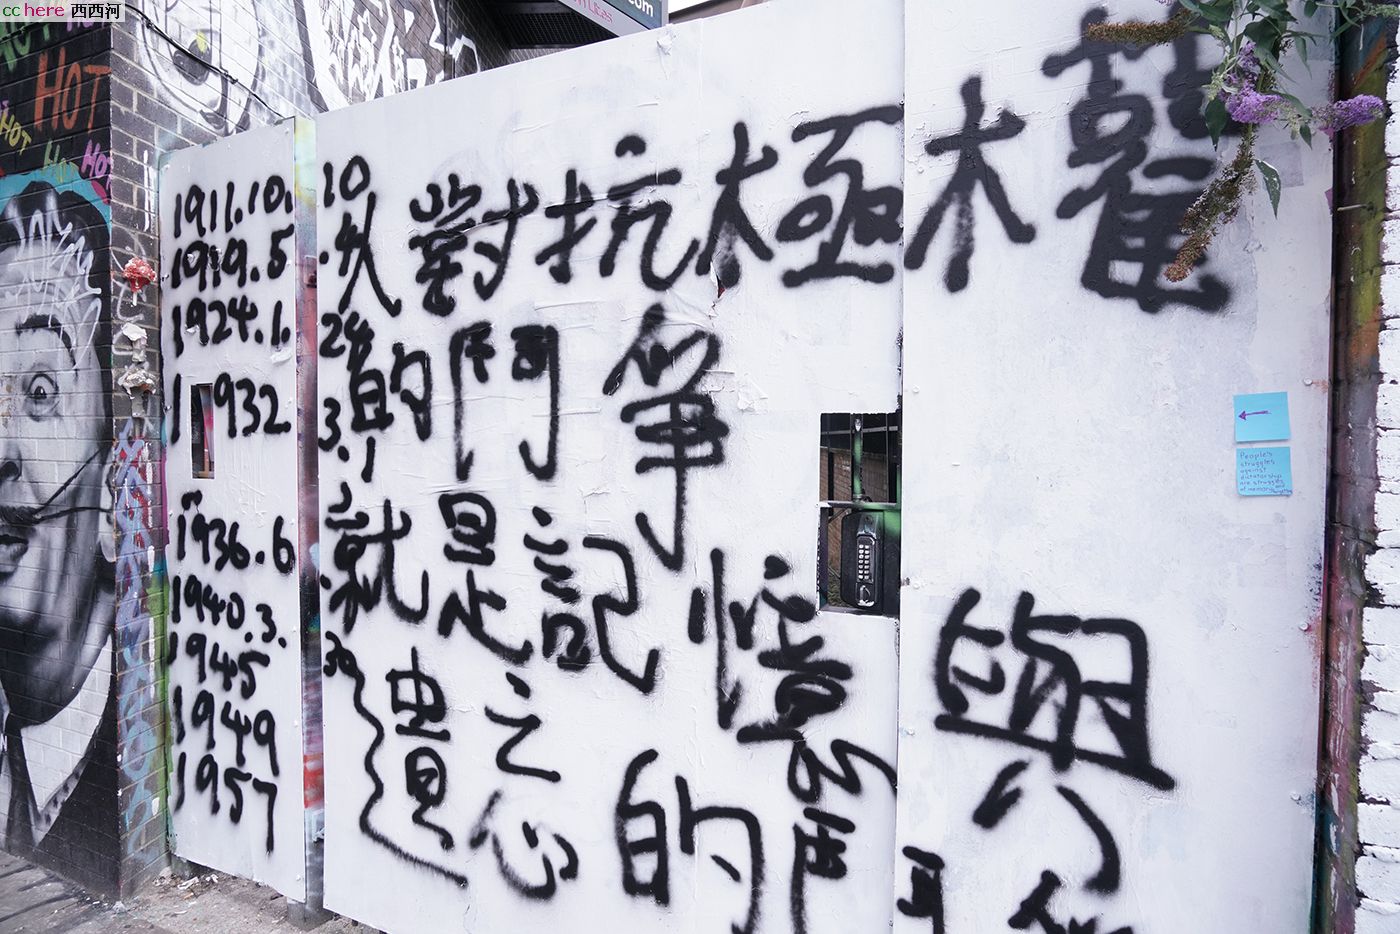 cc here 西西河
.com
HOT
HOT
HOT
HOT
HOT
1911.10.10
1919.5.4
1924.1.24
1932.3.1
1936.6.
1940.3.30
1945
1949
1957
人對抗極權
的鬥爭
就是記憶與
遺忘的鬥爭
←
People's
struggles
against
dictatorship
are struggles
of memory and
forgetting